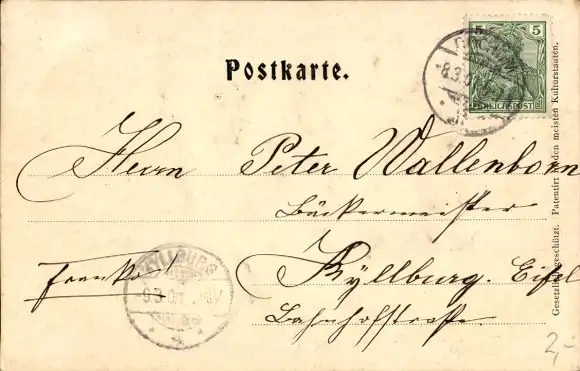 Postkarte.
5 5
REICHSPOST
-8.3.0
Herrn Peter Wallenborn
Bäckermeister
Kyllburg. Eifel
Bahnhofstraße
Franko
KYLLBURG
9.3.01
Gesetzlich geschützt. Patentirt in den meisten Kulturstaaten.
2,-